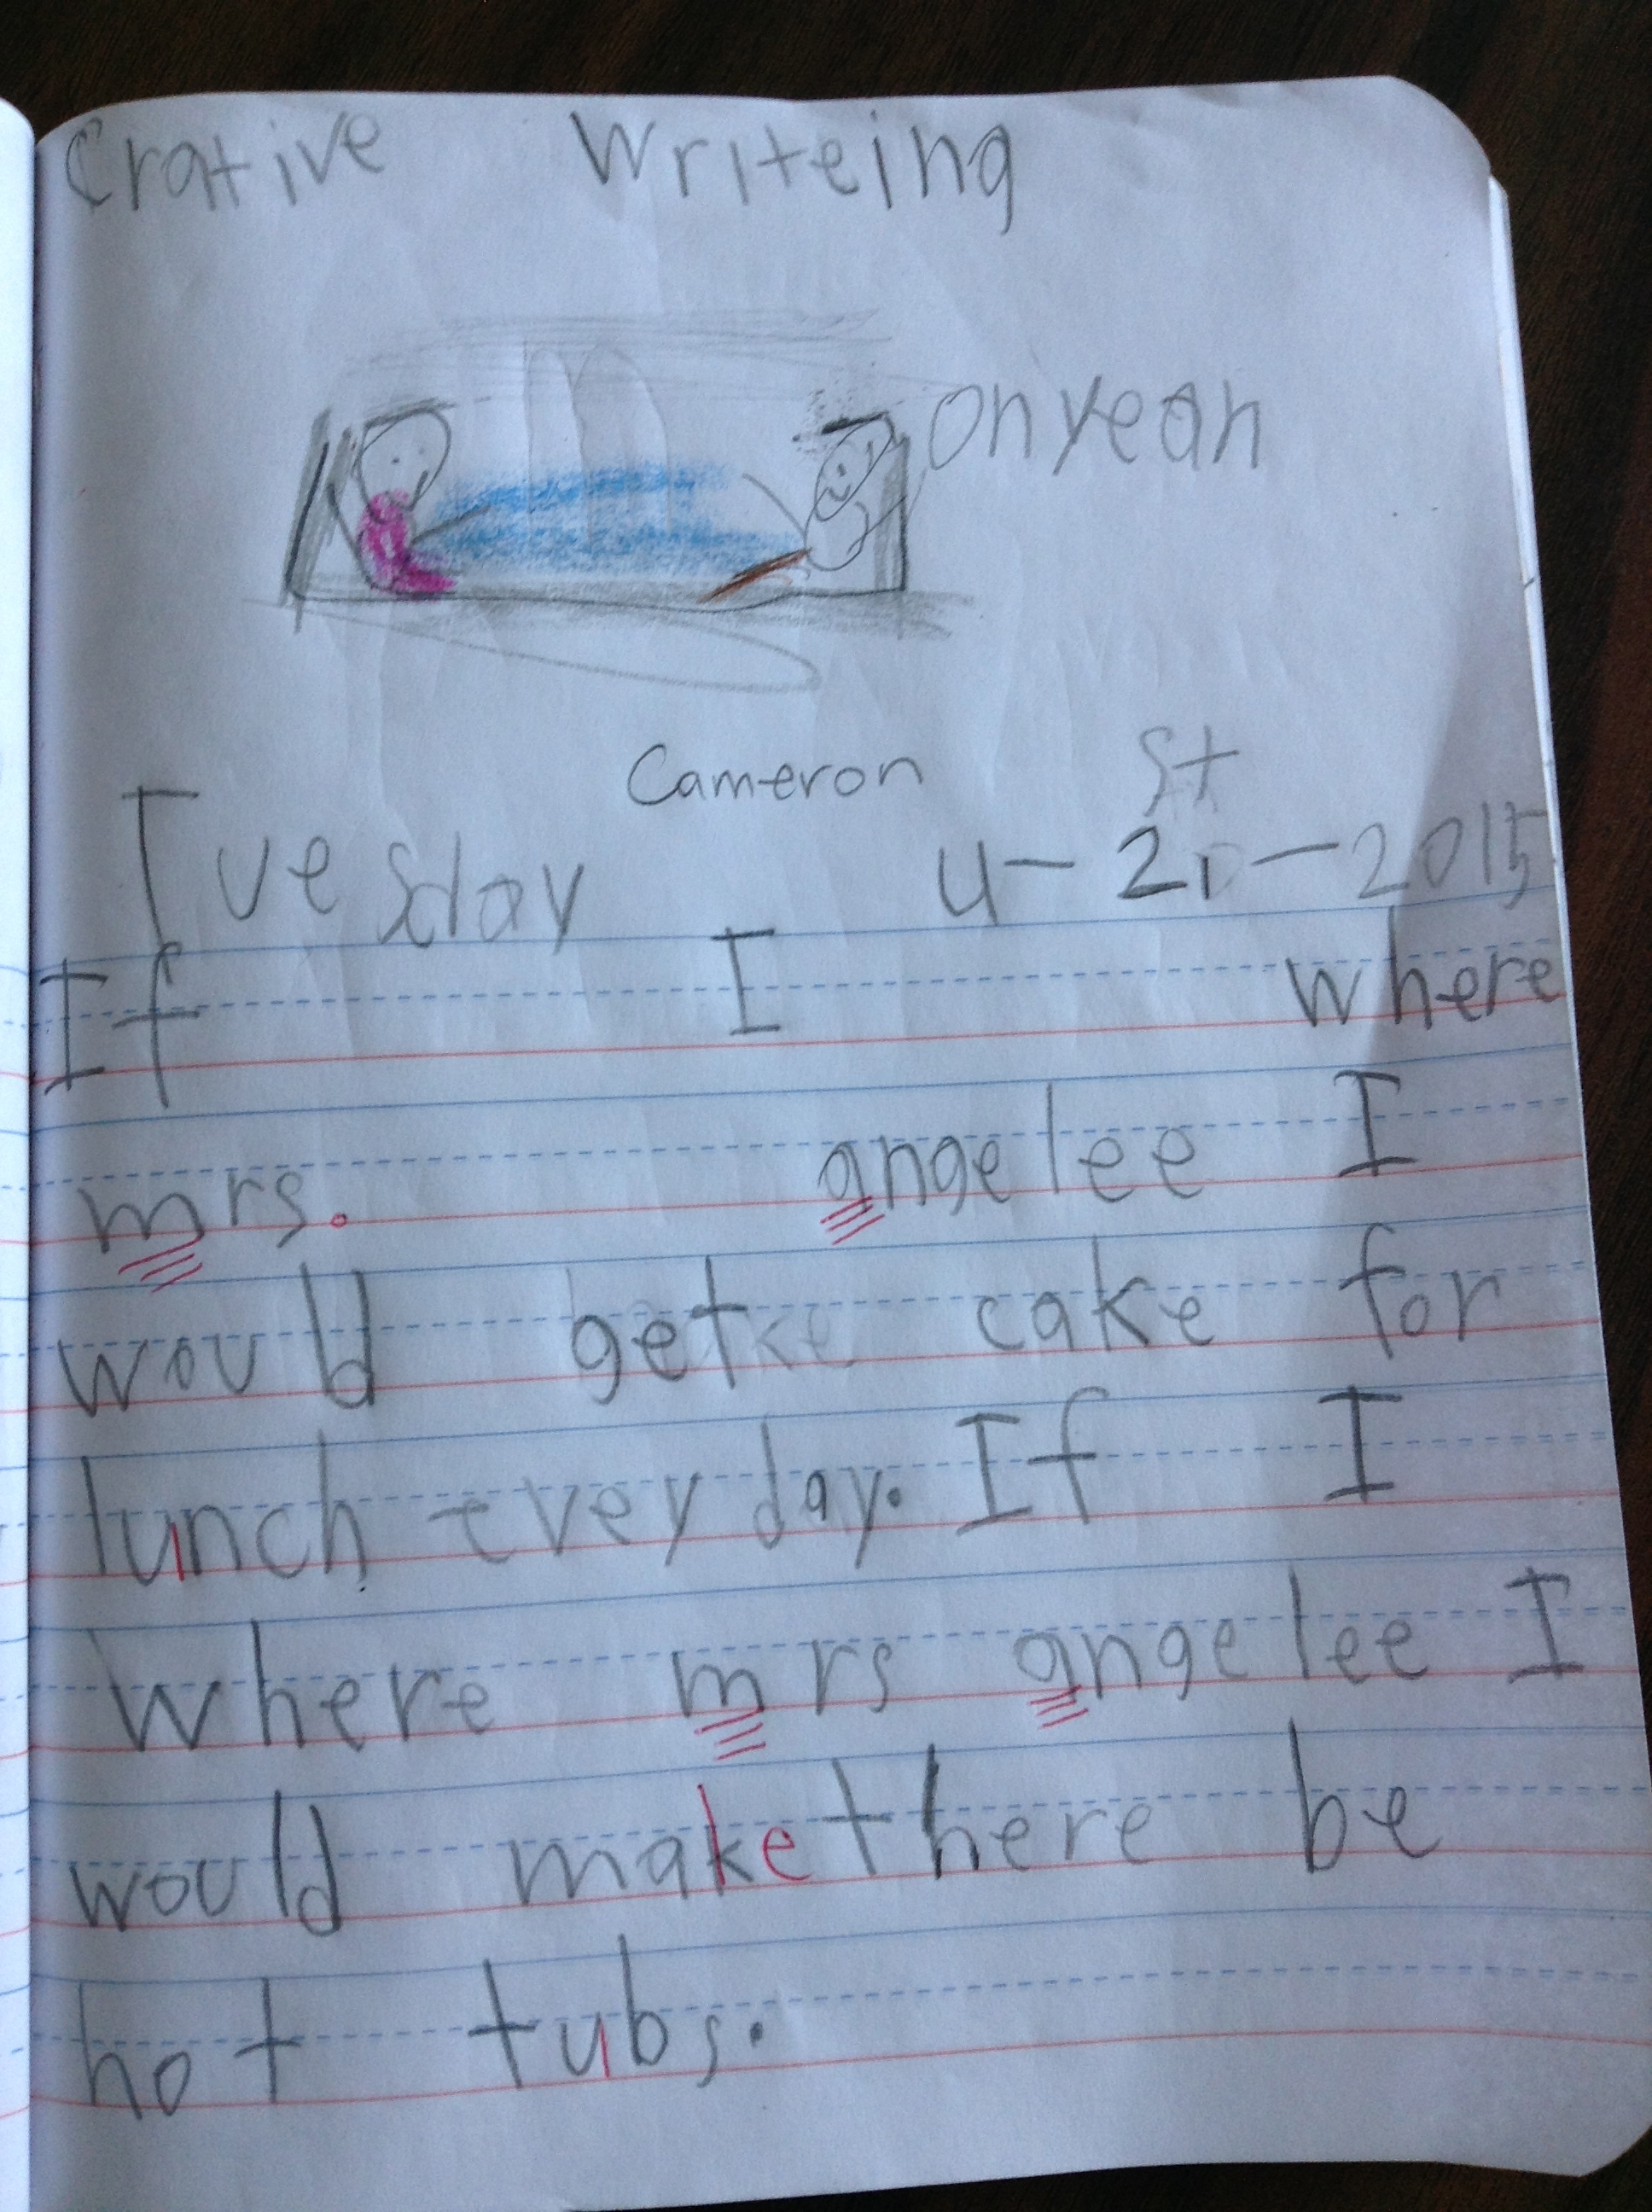 Crative Writeing
onyeah
Cameron
st
Tuesday 4-21-2015
If I where
mrs. angelee I
would get cake for
lunch evey day. If I
where mrs angelee I
would make there be
hot tubs.